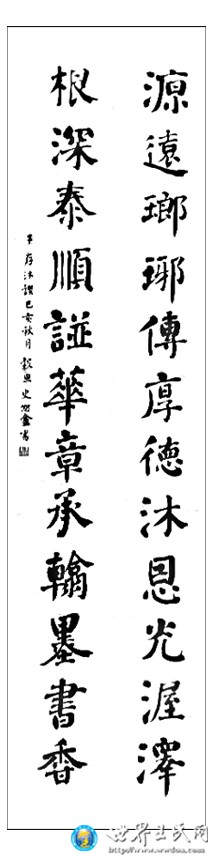 源遠瑯琊傳厚德沐恩光渥澤
根深泰順謚華章承翰墨書香
世界王氏网
http://www.wwdoa.com